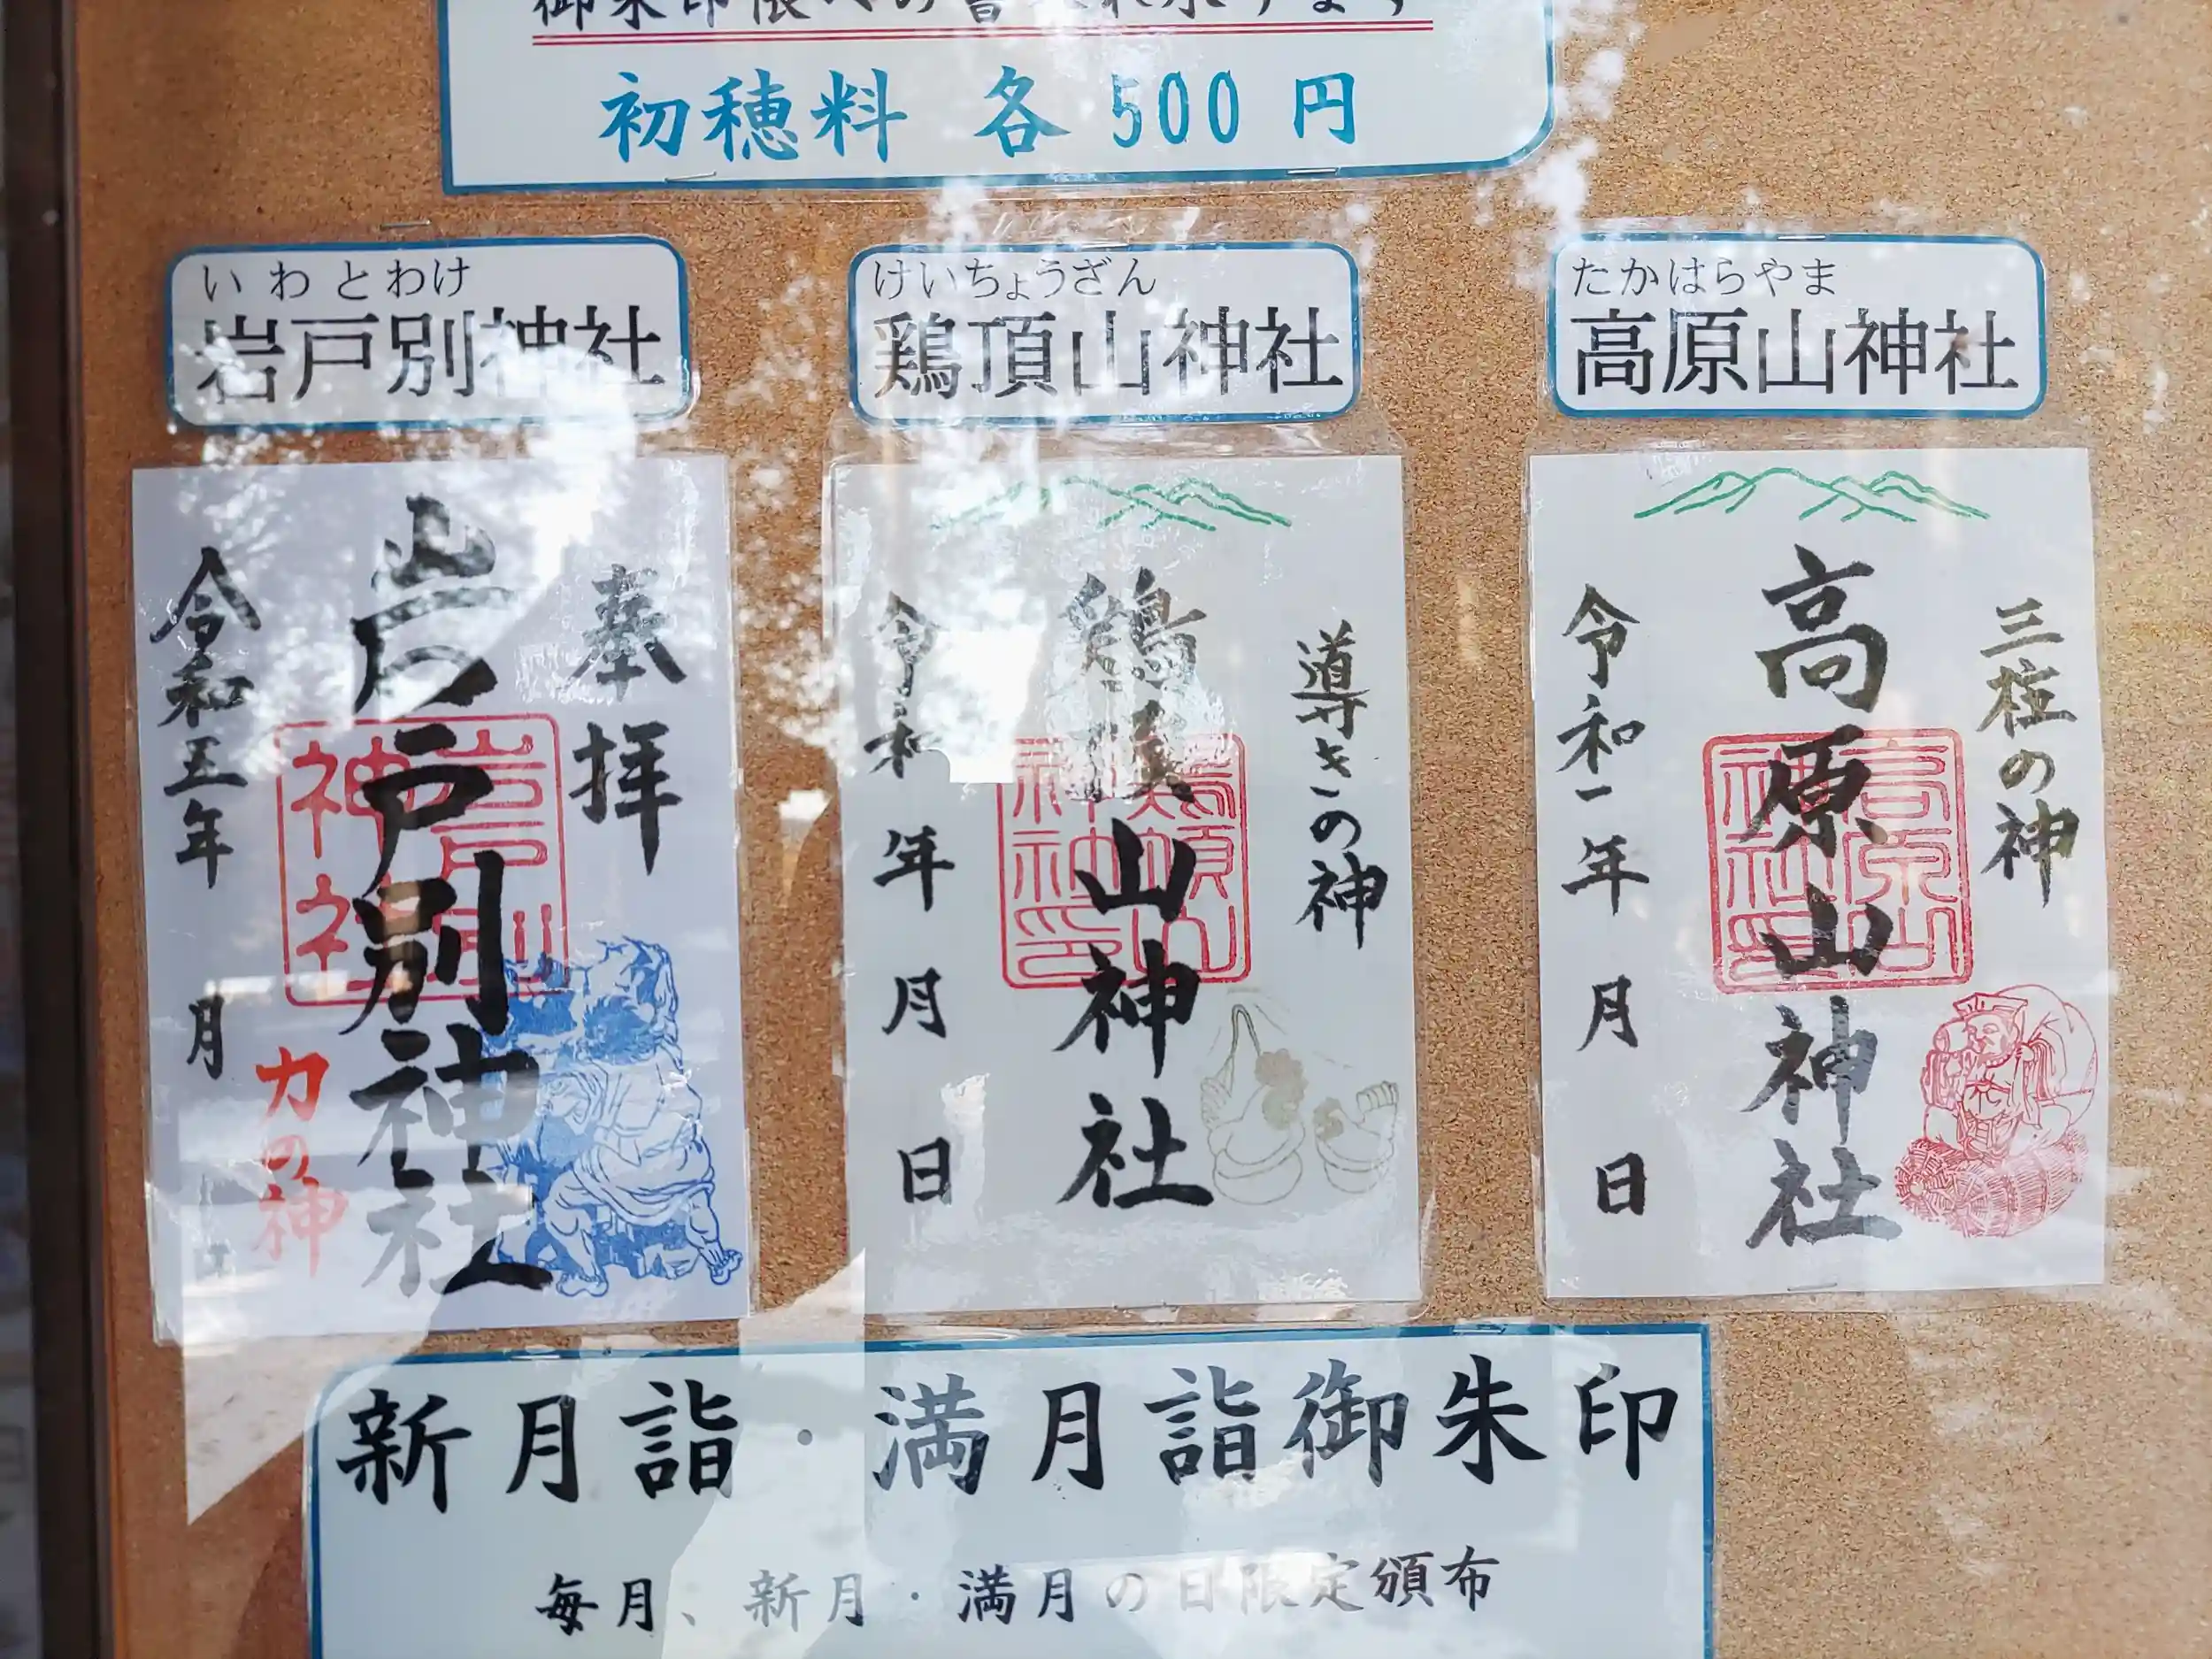 初穂料 各 500 円
いわとわけ
岩戸別神社
けいちょうざん
鶏頂山神社
たかはらやま
高原山神社
奉拝
岩戸別神社
力の神
令和五年 月
導きの神
鶏頂山神社
令和 年 月 日
三柱の神
高原山神社
令和 年 月 日
新月詣・満月詣御朱印
毎月、新月・満月の日限定頒布